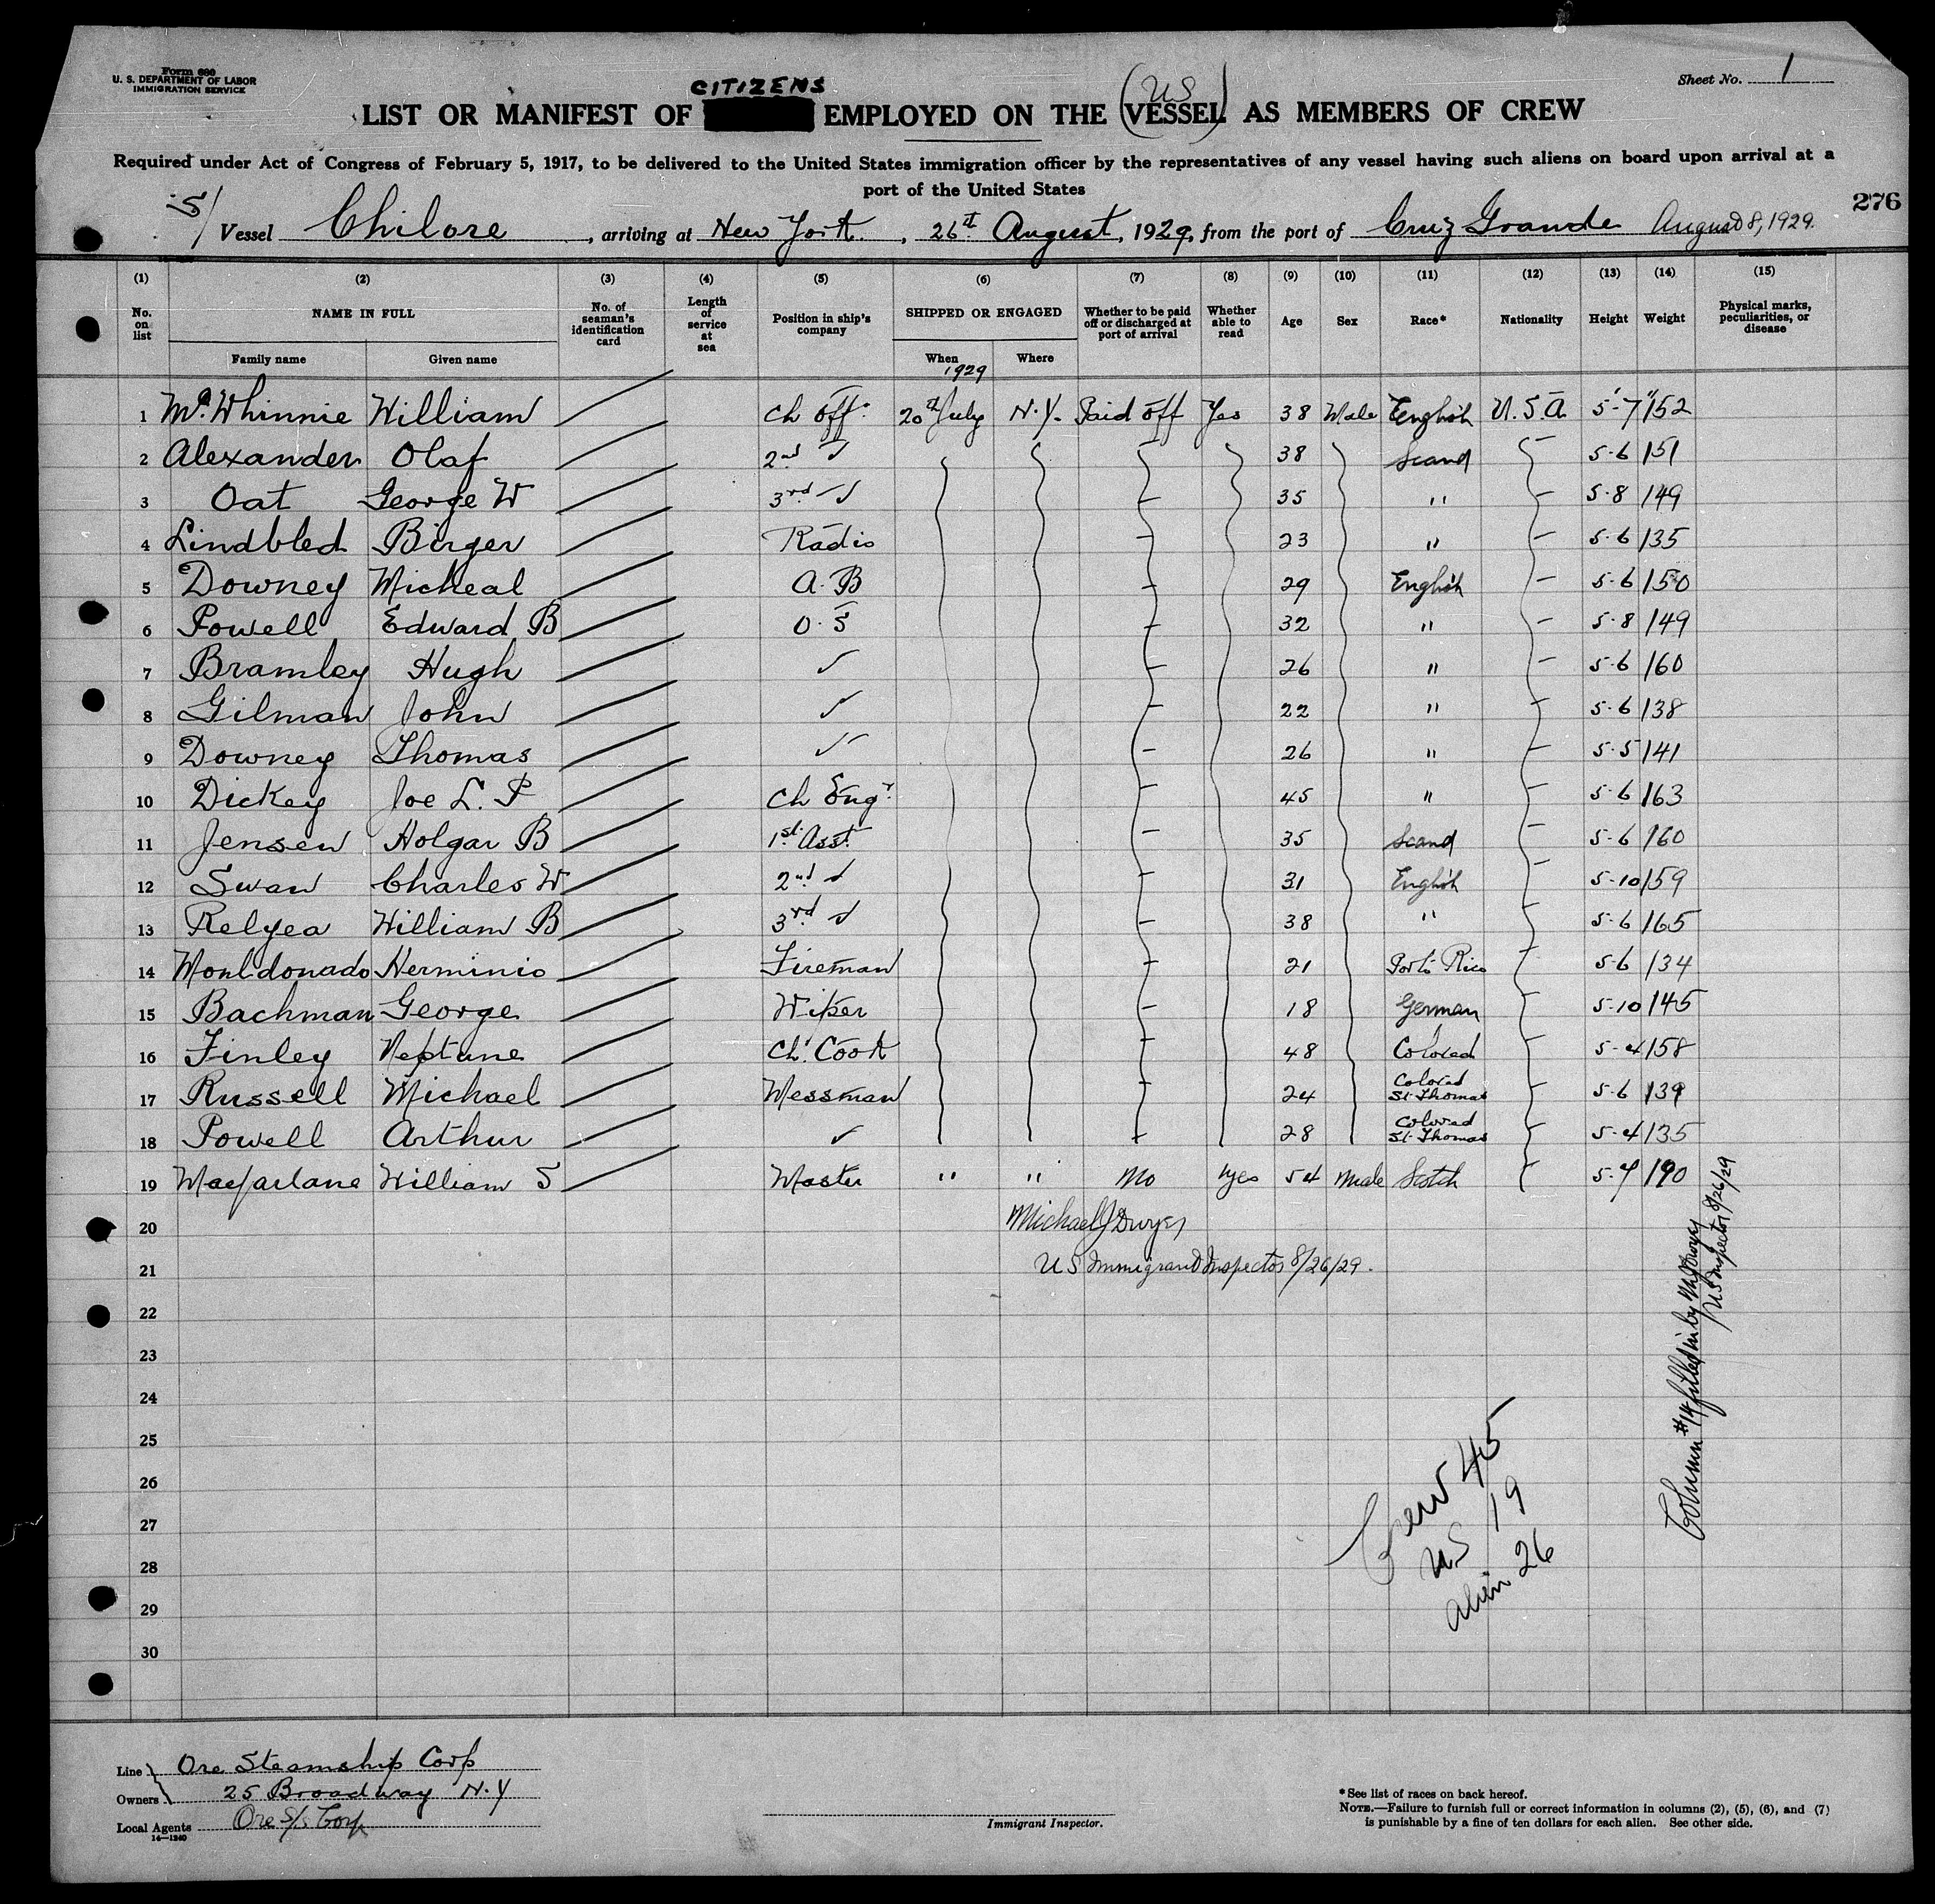 Form 680
U. S. DEPARTMENT OF LABOR
IMMIGRATION SERVICE
Sheet No. 1
CITIZENS
LIST OR MANIFEST OF EMPLOYED ON THE (VESSEL) AS MEMBERS OF CREW
US
Required under Act of Congress of February 5, 1917, to be delivered to the United States immigration officer by the representatives of any vessel having such aliens on board upon arrival at a
port of the United States
276
S/ Vessel Chilore, arriving at New York, 26th August, 1929, from the port of Cruz Grande August 8, 1929.
(1) (2) (3) (4) (5) (6) (7) (8) (9) (10) (11) (12) (13) (14) (15)
No. on list NAME IN FULL No. of seaman's identification card Length of service at sea Position in ship's company SHIPPED OR ENGAGED Whether to be paid off or discharged at port of arrival Whether able to read Age Sex Race* Nationality Height Weight Physical marks, peculiarities, or disease
Family name Given name When Where
1929
1 McWhinnie William Ch Off. 20th July N.Y. Paid off Yes 38 Male English U.S.A. 5'-7" 152
2 Alexander Olaf 2nd ✓ 38 Scand 5-6 151
3 Oat George W 3rd ✓ — 35 " — 5-8 149
4 Lindbled Birger Radio — 23 " — 5-6 135
5 Downey Micheal A.B — 29 English — 5-6 150
6 Powell Edward B O.S — 32 " — 5-8 149
7 Bramley Hugh ✓ — 26 " — 5-6 160
8 Gilman John ✓ — 22 " — 5-6 138
9 Downey Thomas ✓ — 26 " — 5-5 141
10 Dickey Joe L. P Ch Engr. — 45 " — 5-6 163
11 Jensen Holgar B 1st Asst. — 35 Scand — 5-6 160
12 Swan Charles W 2nd ✓ — 31 English — 5-10 159
13 Relyea William B 3rd ✓ — 38 " — 5-6 165
14 Monldonado Herminio Fireman — 21 Porto Rico — 5-6 134
15 Bachman George Wiper — 18 German — 5-10 145
16 Finley Neptune Ch. Cook — 48 Colored — 5-4 158
17 Russell Michael Messman — 24 Colored St. Thomas — 5-6 139
18 Powell Arthur ✓ — 28 Colored St. Thomas — 5-4 135
19 Macfarlane William S Master " " No yes 54 Male Scotch 5-7 190
20 Michael J Dwyer
21 US Immigrant Inspector 8/26/29.
22
23
24
25
26
27
28
29
30
Column #14 filled in by M J Dwyer
US Inspector 8/26/29
Crew 45
US 19
Alien 26
Line Ore Steamship Corp
Owners 25 Broadway N.Y
Local Agents Ore S/S Corp
14—1240
Immigrant Inspector.
*See list of races on back hereof.
NOTE.—Failure to furnish full or correct information in columns (2), (5), (6), and (7)
is punishable by a fine of ten dollars for each alien. See other side.